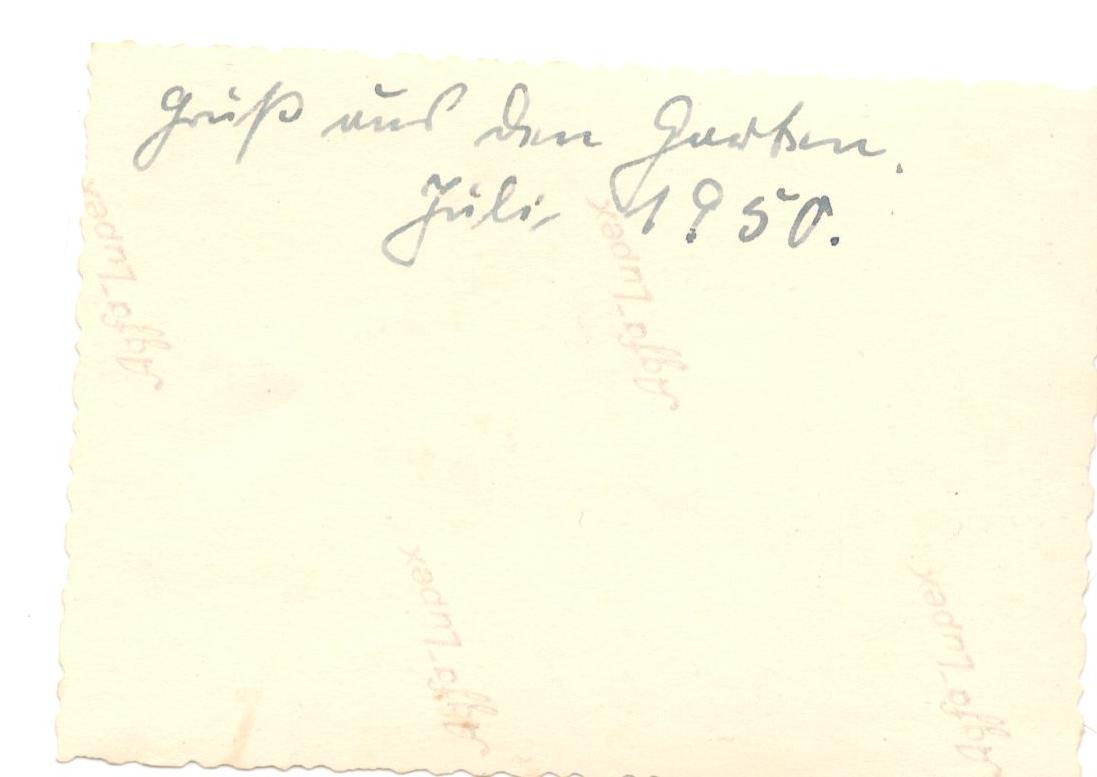 Gruß aus den Garten.
Juli 1950.
Agfa-Lupex
Agfa-Lupex
Agfa-Lupex
Agfa-Lupex